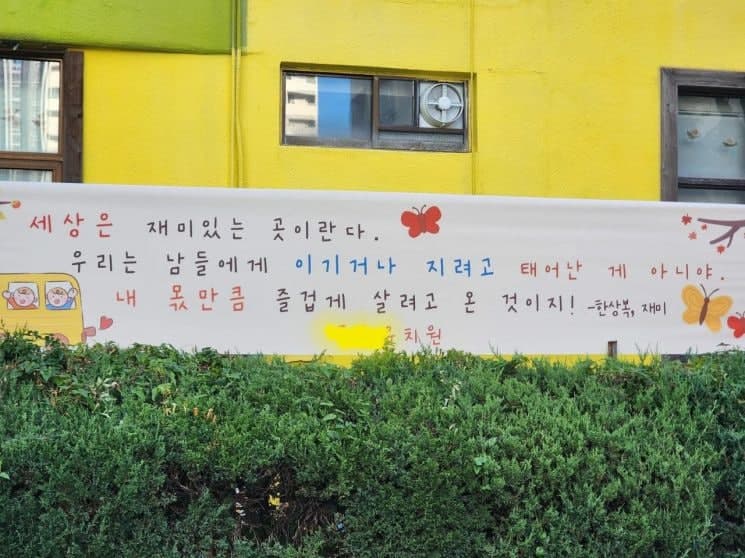 세상은 재미있는 곳이란다.
우리는 남들에게 이기거나 지려고 태어난 게 아니야.
내 몫만큼 즐겁게 살려고 온 것이지! -한상복, 재미
치원